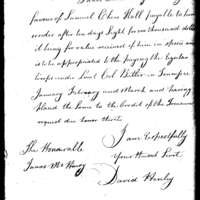 favour of Samuel Chase Hall payable to him
order after ten days Sight for one thousand dollars
it being for value received of him in specie and
is to be appropriated to the paying the Regular
troops under Lieut Col Butler in Tenessee
January February and March and having
placed the same to the Credit of the Treasurer
request due honor thereto
I am Respectfully
Your Humbl Servt
David Henley
The Honourable
James McHenry